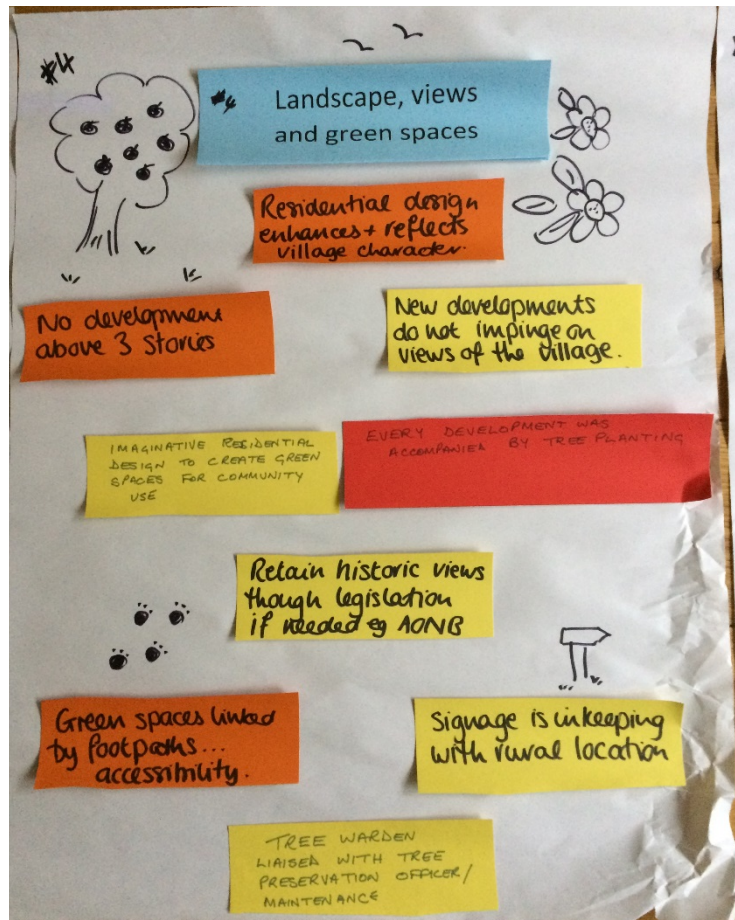 #4
#4 Landscape, views
and green spaces
Residential design
enhances + reflects
village character.
No development
above 3 stories
New developments
do not impinge on
views of the village.
IMAGINATIVE RESIDENTIAL
DESIGN TO CREATE GREEN
SPACES FOR COMMUNITY
USE
EVERY DEVELOPMENT WAS
ACCOMPANIED BY TREE PLANTING
Retain historic views
though legislation
if needed eg AONB
Green spaces linked
by footpaths...
accessibility.
Signage is in keeping
with rural location
TREE WARDEN
LIAISED WITH TREE
PRESERVATION OFFICER/
MAINTENANCE